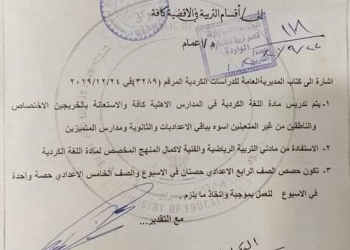 الى / أقسام التربية والاقضية كافة
م / اعمام
اشارة الى كتاب المديرية العامة للدراسات الكردية المرقم (٣٢٨٩) في ٢٠١٩/١٢/٢٤
١- يتم تدريس مادة اللغة الكردية في المدارس الاهلية كافة والاستعانة بالخريجين الاختصاص
والناطقين من غير المتعينين اسوه بباقي الاعداديات والثانوية ومدارس المتميزين
٢- الاستفادة من مادتي التربية الرياضية والفنية لاكمال المنهج المخصص لمادة اللغة الكردية
٣- تكون حصص الصف الرابع الاعدادي حصتان في الاسبوع والصف الخامس الاعدادي حصة واحدة
في الاسبوع للعمل بموجبة واتخاذ ما يلزم .
مع التقدير...